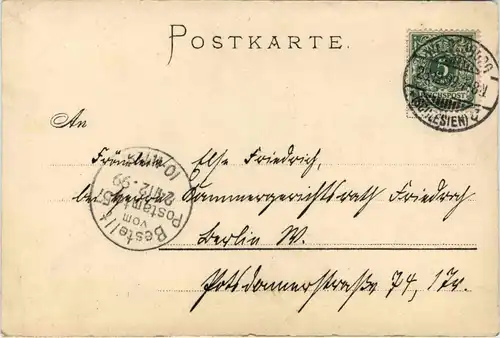 POSTKARTE.
5
REICHSPOST
(SCHLESIEN)
An
Fräulein Else Friedrich,
bei Herrn Kammergerichtsrath Friedrich
Berlin W.
Potsdamerstraße 74, I Tr.
Bestellt
vom
Postamte
24/12.99